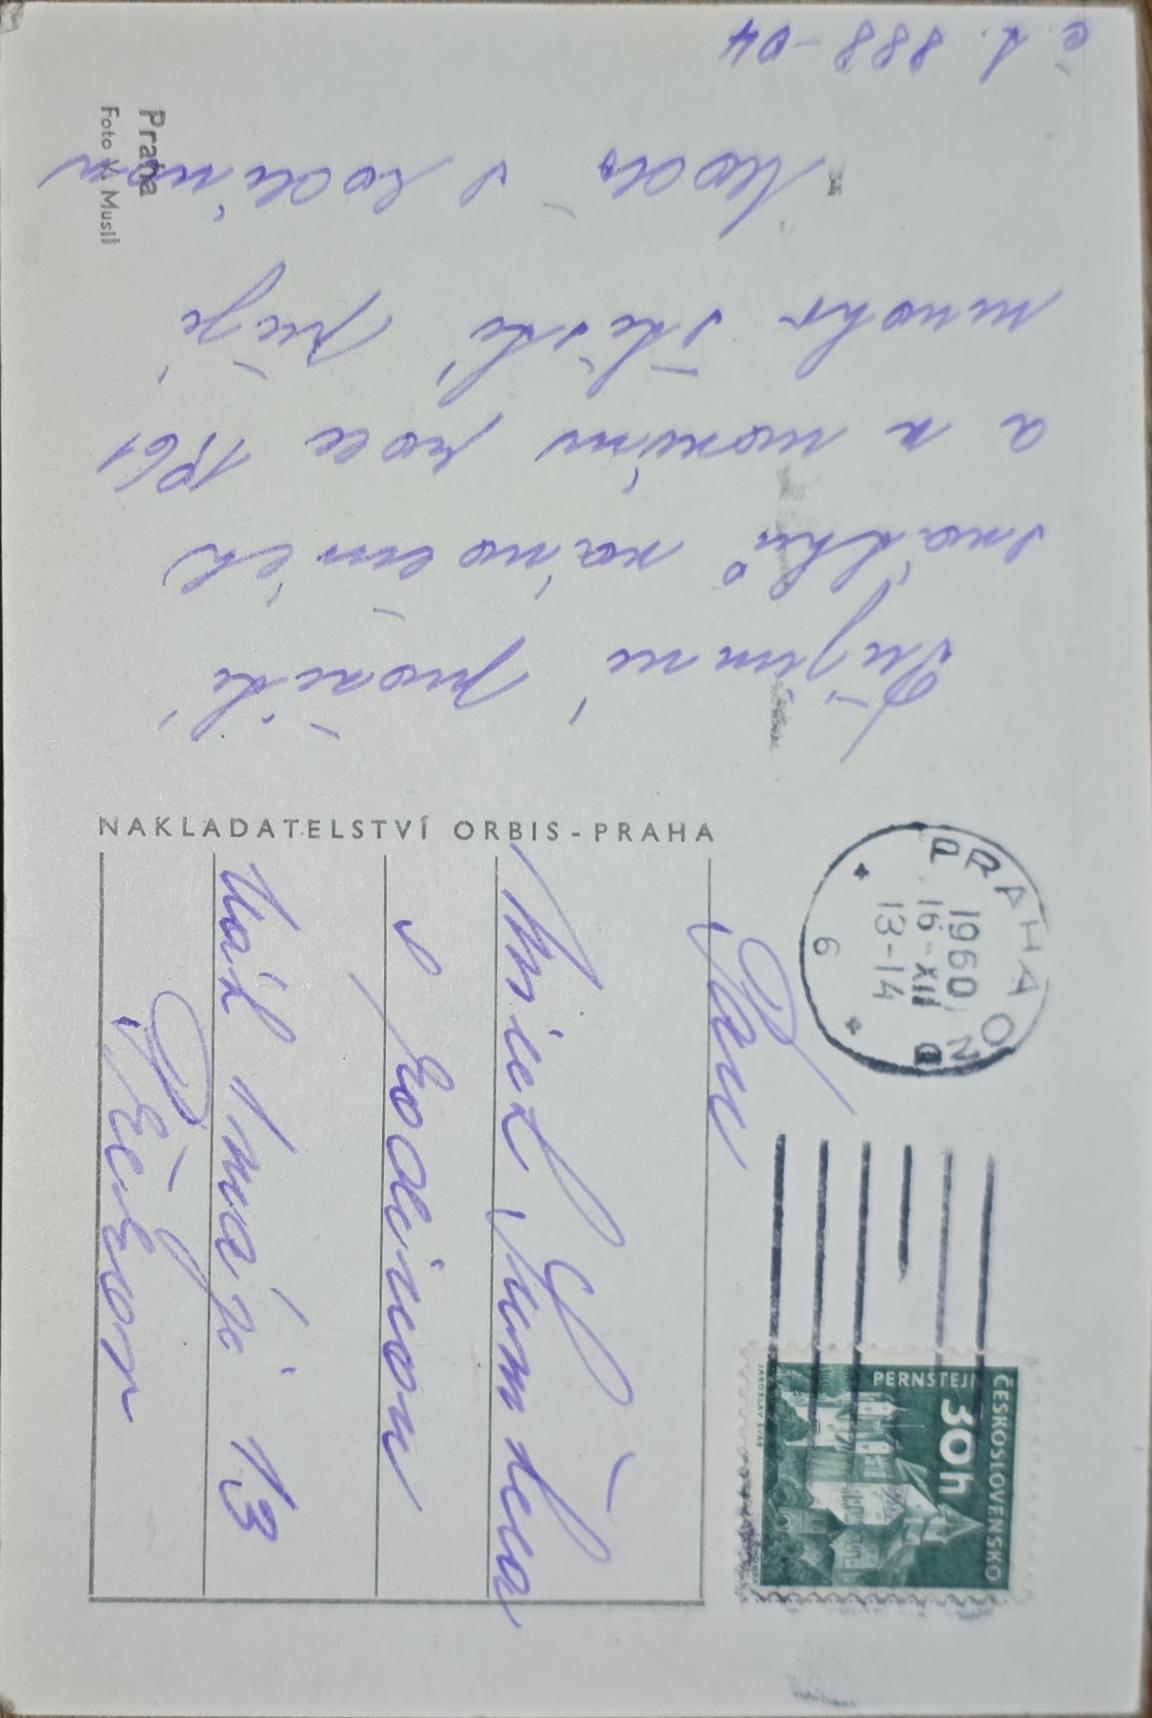 Příjemné prožití
svátků vánočních
a v novém roce 1961
mnoho štěstí přeje
s rodinou
č. t. 888-04
Praha
Foto K. Musil
NAKLADATELSTVÍ ORBIS - PRAHA
PRAHA
1960
16-XII
13-14
6
ČESKOSLOVENSKO
30h
PERNŠTEJN
Pan
s rodinou
1 máje 13